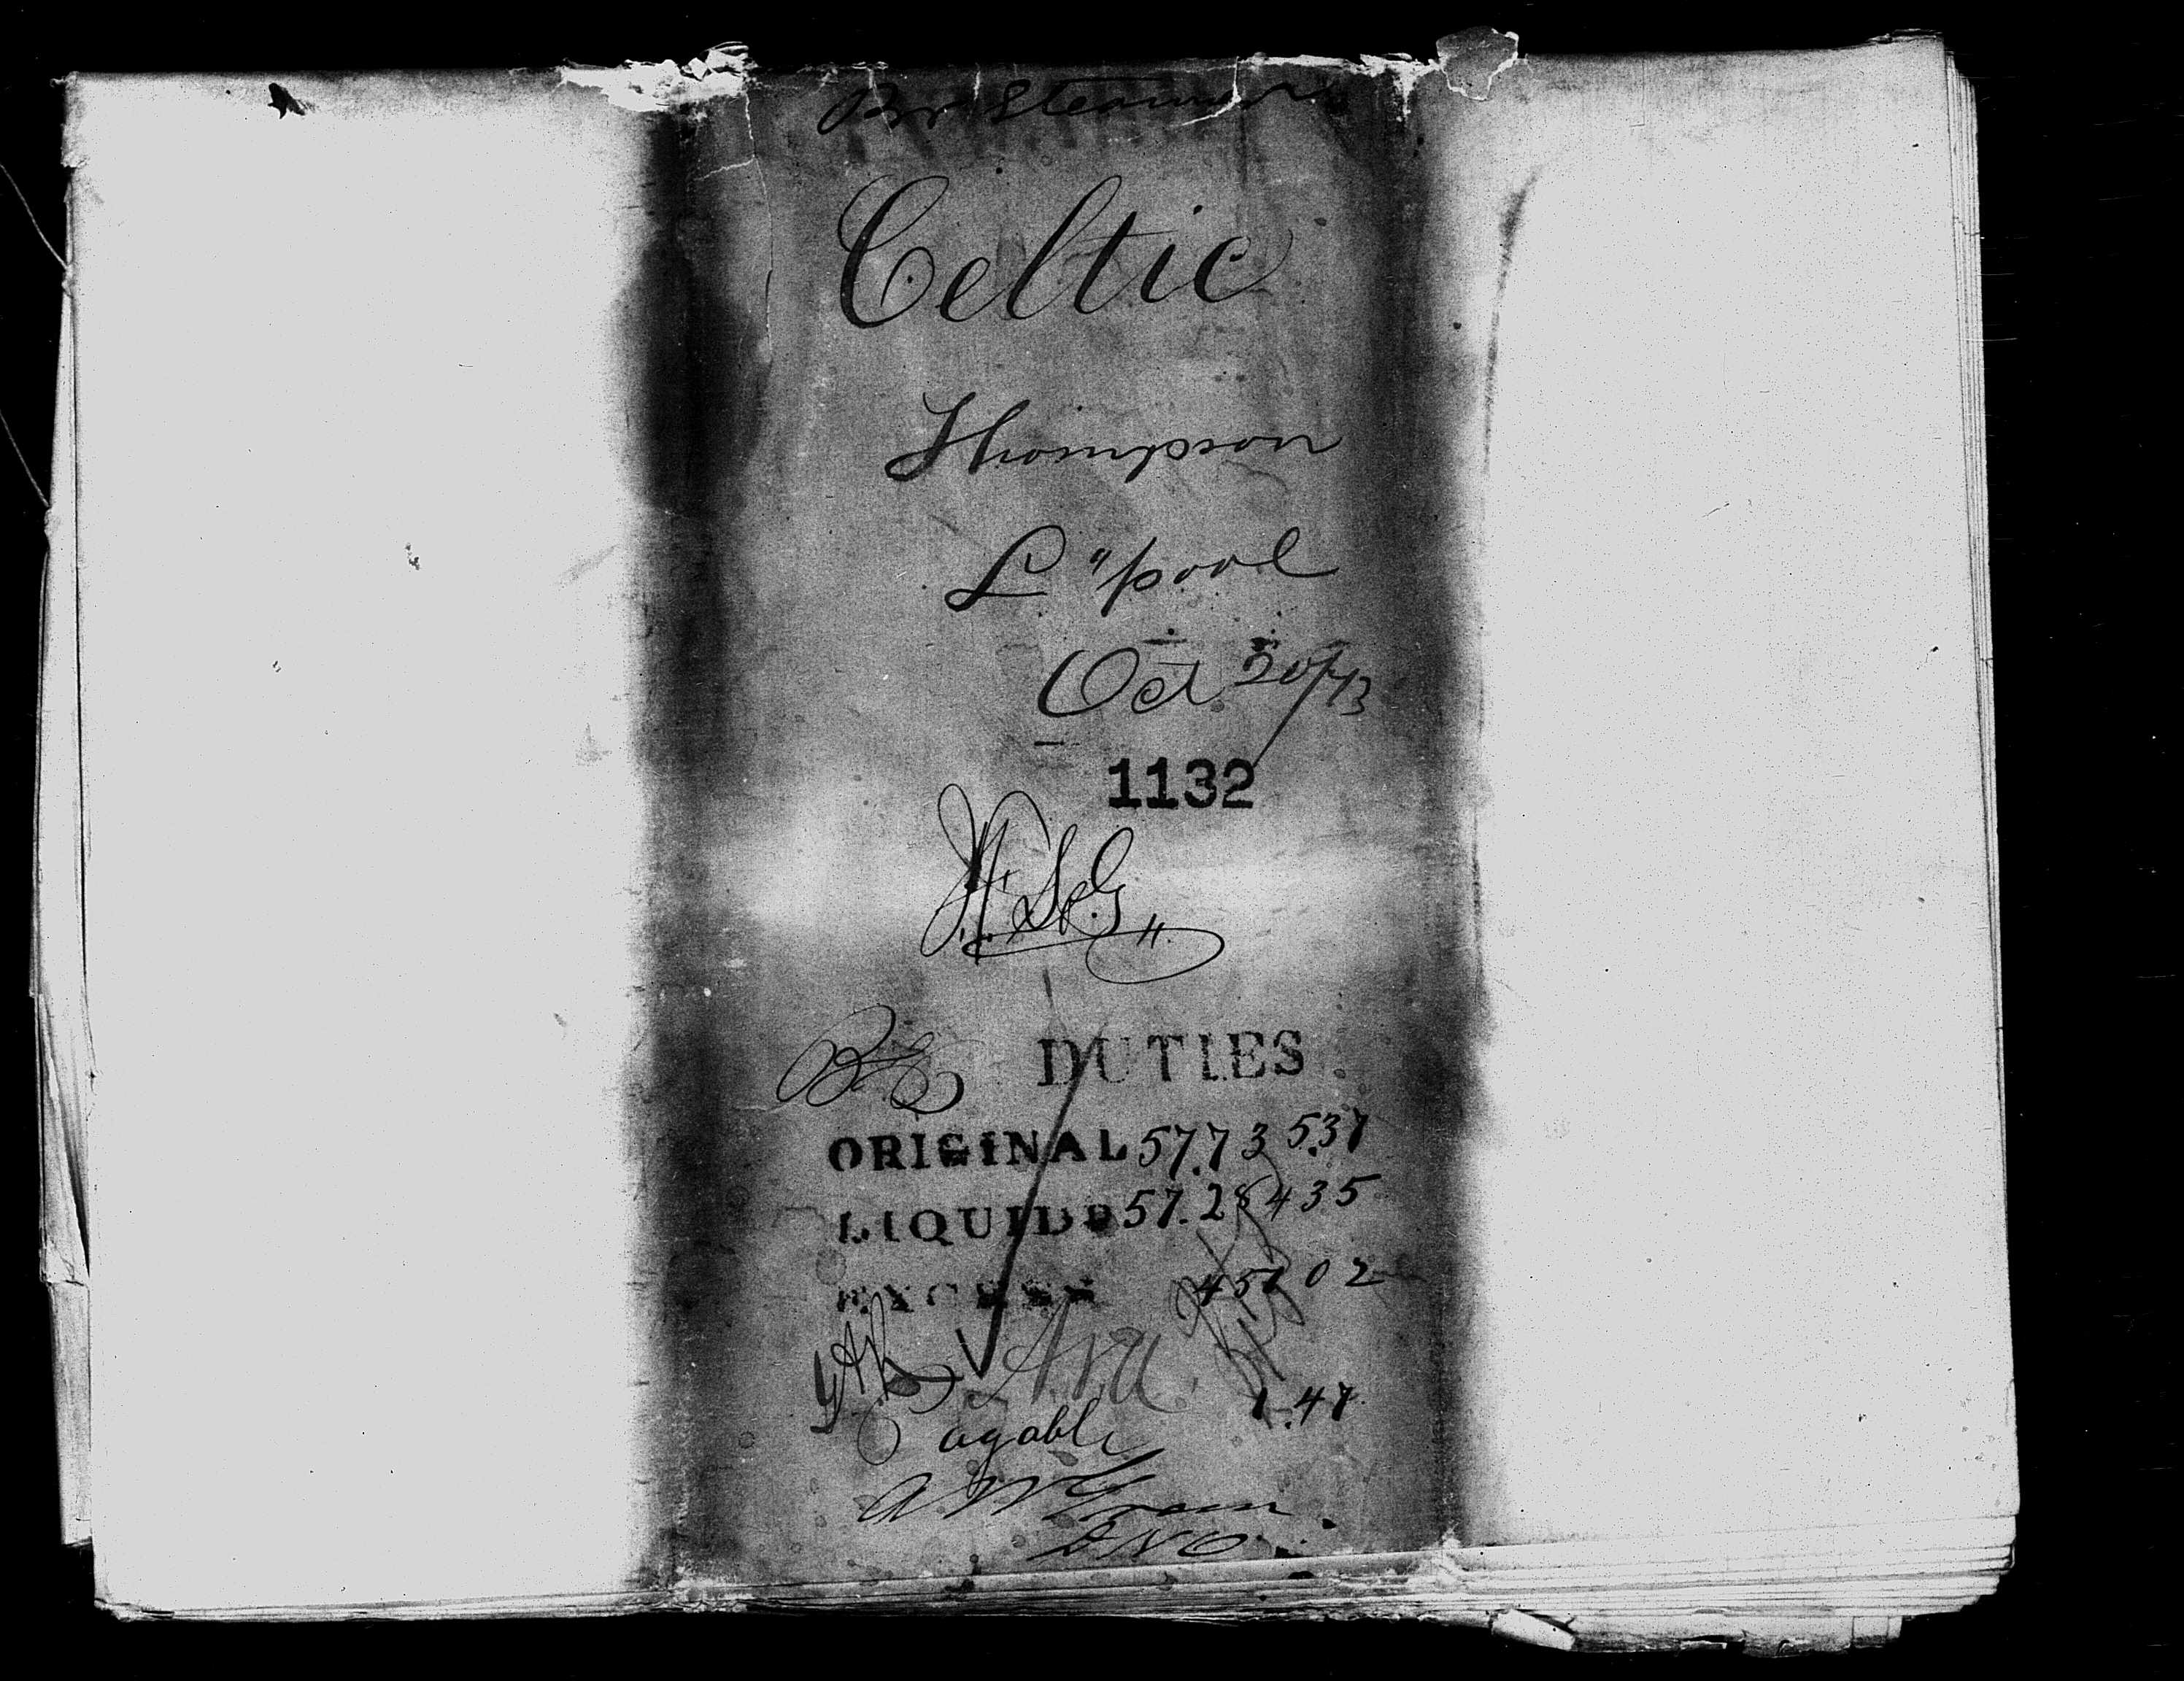 Br Steamer
Celtic
Thompson
L"pool
Oct 20/73
1132
DUTIES
ORIGINAL 57.73 5.37
LIQUIDD 57.28 4 35
EXCESS 45 1 0 2
1.47